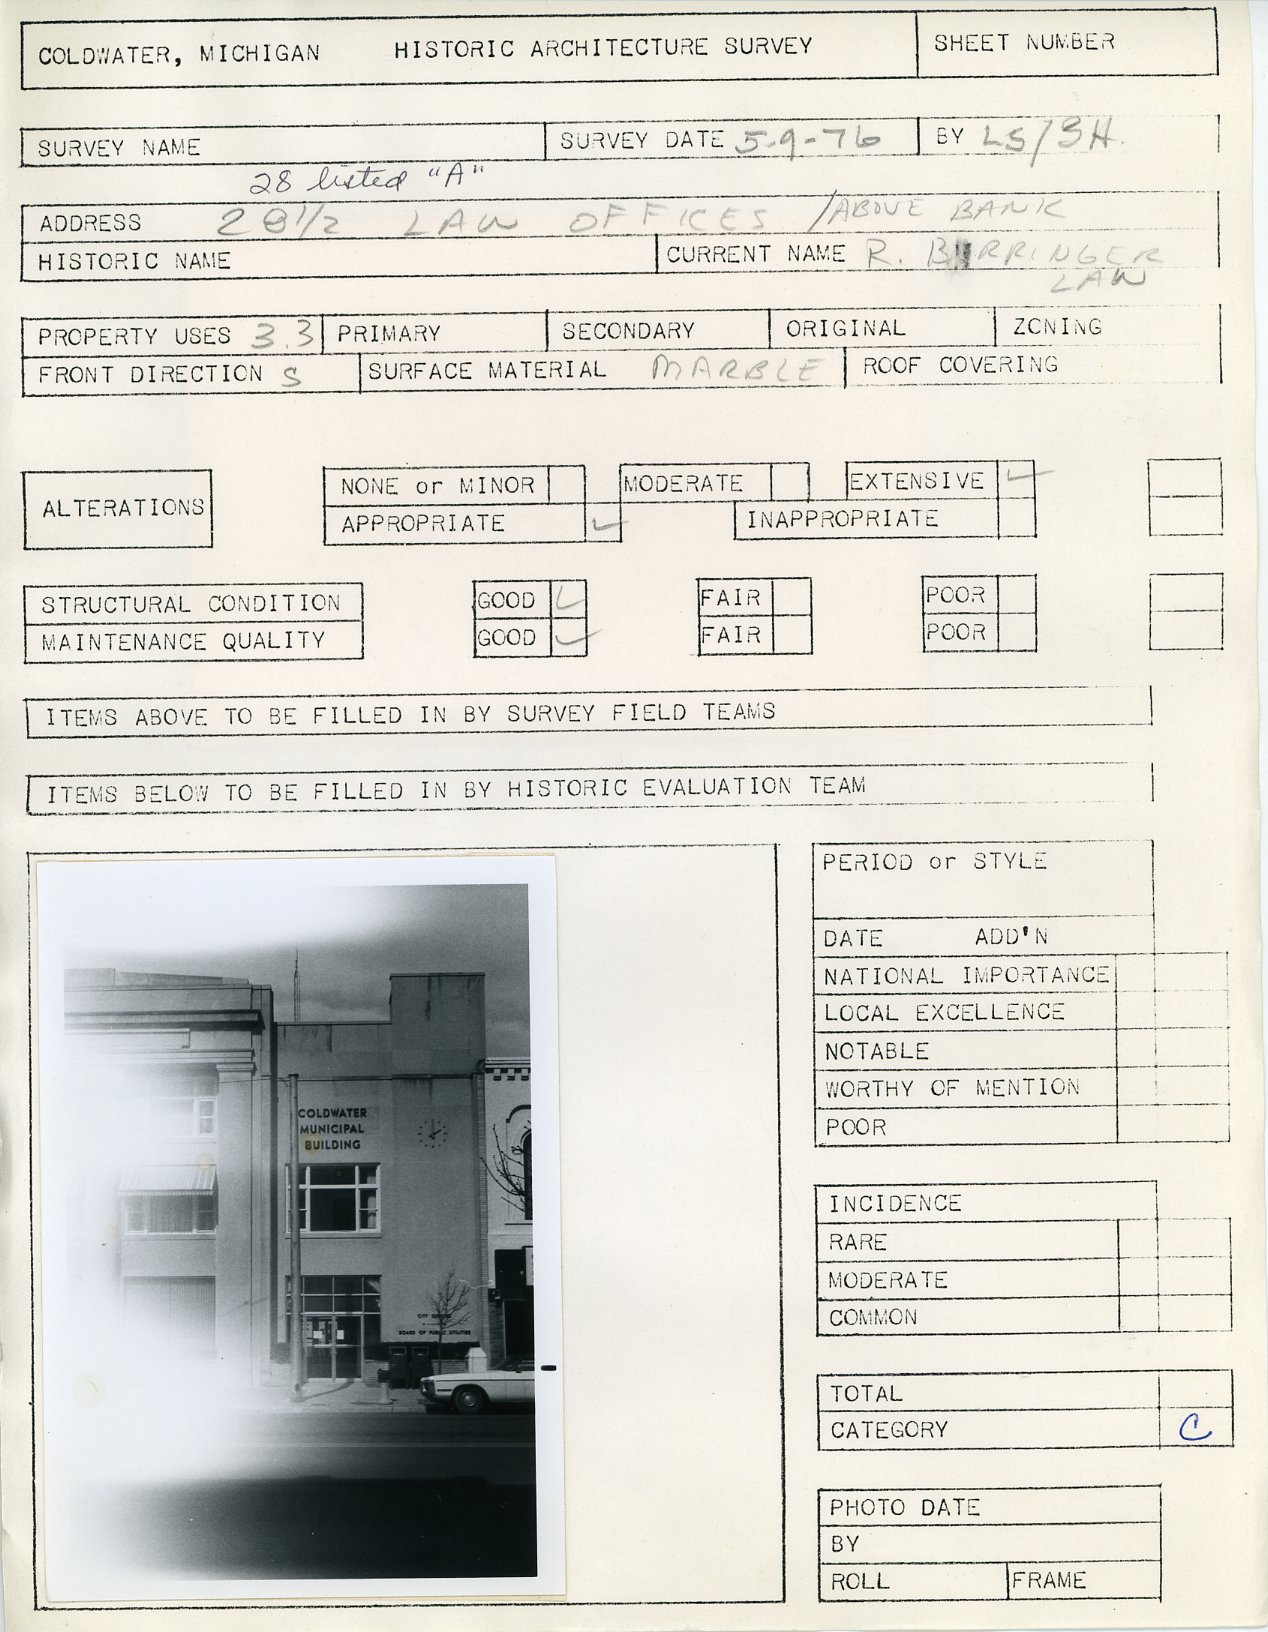 COLDWATER, MICHIGAN HISTORIC ARCHITECTURE SURVEY SHEET NUMBER
SURVEY NAME SURVEY DATE 5-9-76 BY LS/SH.
28 listed "A"
ADDRESS 28½ LAW OFFICES /ABOVE BANK
HISTORIC NAME CURRENT NAME R.
LAW
PROPERTY USES 3.3 PRIMARY SECONDARY ORIGINAL ZONING
FRONT DIRECTION S SURFACE MATERIAL MARBLE ROOF COVERING
ALTERATIONS
NONE or MINOR MODERATE EXTENSIVE ✓
APPROPRIATE ✓ INAPPROPRIATE
STRUCTURAL CONDITION GOOD ✓ FAIR POOR
MAINTENANCE QUALITY GOOD ✓ FAIR POOR
ITEMS ABOVE TO BE FILLED IN BY SURVEY FIELD TEAMS
ITEMS BELOW TO BE FILLED IN BY HISTORIC EVALUATION TEAM
COLDWATER
MUNICIPAL
BUILDING
CITY
BOARD OF PUBLIC UTILITIES
PERIOD or STYLE
DATE ADD'N
NATIONAL IMPORTANCE
LOCAL EXCELLENCE
NOTABLE
WORTHY OF MENTION
POOR
INCIDENCE
RARE
MODERATE
COMMON
TOTAL
CATEGORY C
PHOTO DATE
BY
ROLL FRAME